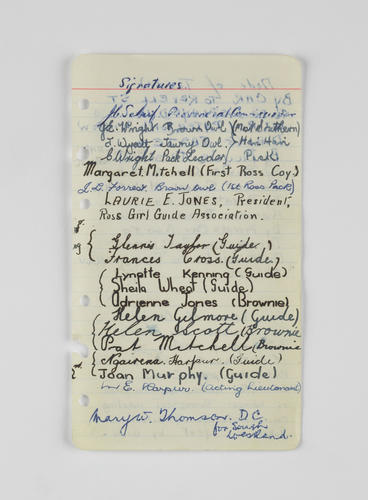 Signatures
Provincial Commissioner
J.E. Wright Brown Owl
J. Wyatt Tawny Owl. Hari Hari
E Wright Pack Leader, Pack)
Margaret Mitchell (First Ross Coy)
J.D. Forrest. Brown Owl (1st Ross Pack)
LAURIE E. JONES, President,
Ross Girl Guide Association.
Glennis Taylor (Guide,)
Frances Cross. (Guide)
Lynette Kenning (Guide)
Sheila Wheat (Guide)
Adrienne Jones (Brownie)
Helen Gilmore (Guide)
Helen Scott (Brownie
Pat Mitchell (Brownie
Ngairena Harpur. (Guide)
Joan Murphy. (Guide)
E. Harpur. (Acting Lieutenant)
Mary W. Thomson. D.C.
for South
Westland.